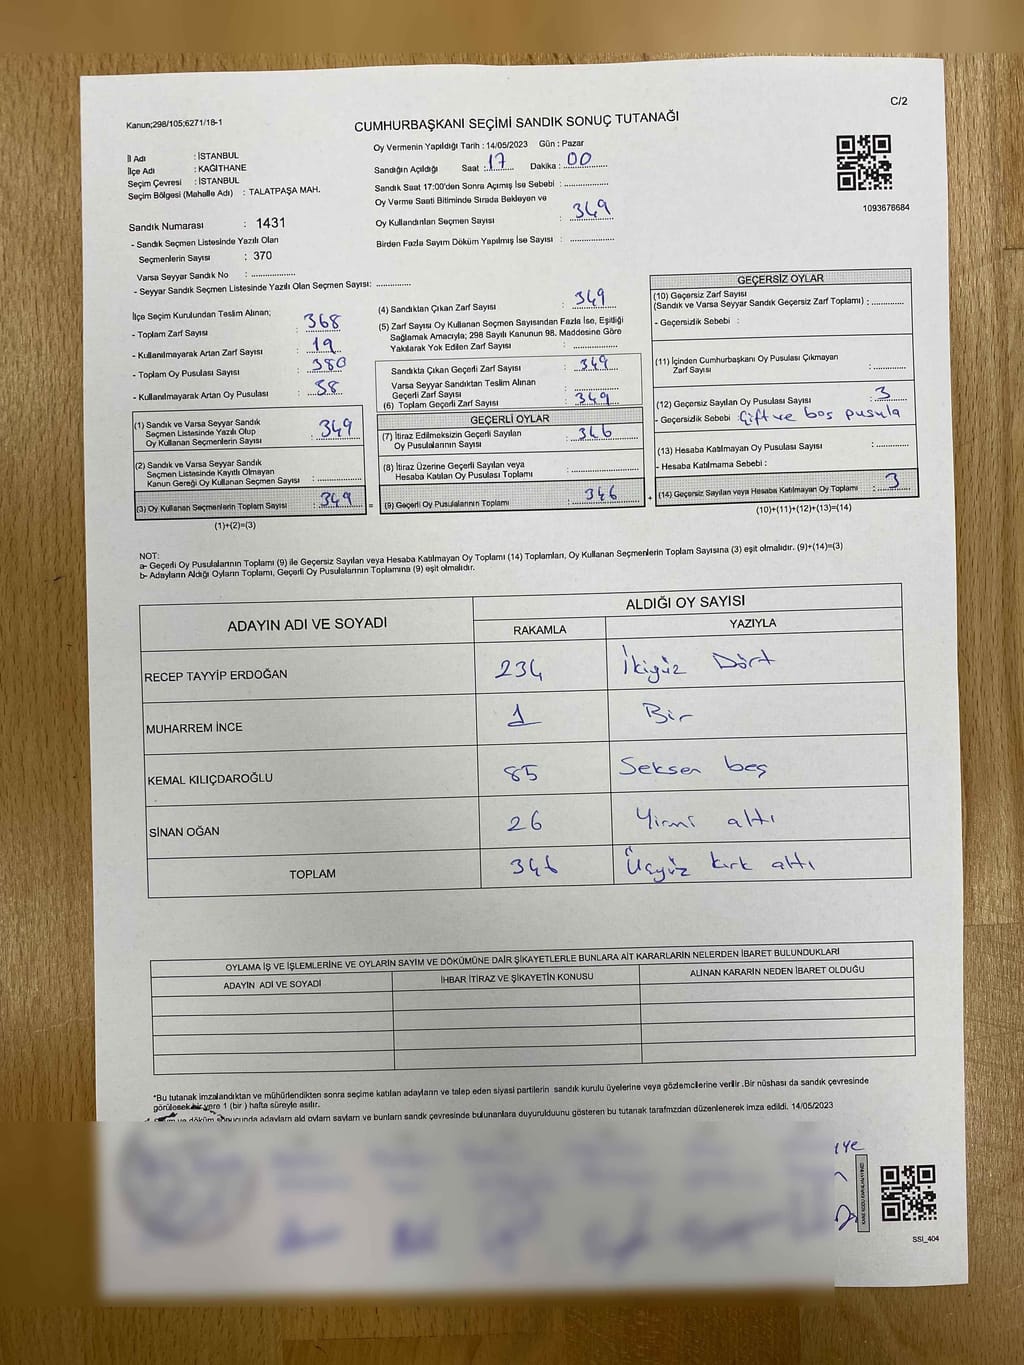 C/2
Kanun;298/105;6271/18-1
CUMHURBAŞKANI SEÇİMİ SANDIK SONUÇ TUTANAĞI
İl Adı : İSTANBUL
İlçe Adı : KAĞITHANE
Seçim Çevresi : İSTANBUL
Seçim Bölgesi (Mahalle Adı) : TALATPAŞA MAH.
Sandık Numarası : 1431
- Sandık Seçmen Listesinde Yazılı Olan
Seçmenlerin Sayısı : 370
Varsa Seyyar Sandık No : ..................
- Seyyar Sandık Seçmen Listesinde Yazılı Olan Seçmen Sayısı: ..............
Oy Vermenin Yapıldığı Tarih : 14/05/2023 Gün : Pazar
Sandığın Açıldığı Saat : 17 Dakika : 00
Sandık Saat 17:00'den Sonra Açımış İse Sebebi : ..................
Oy Verme Saati Bitiminde Sırada Bekleyen ve
Oy Kullandırılan Seçmen Sayısı : 349
Birden Fazla Sayım Döküm Yapılmış İse Sayısı : ..................
1093676684
İlçe Seçim Kurulundan Teslim Alınan;
- Toplam Zarf Sayısı : 368
- Kullanılmayarak Artan Zarf Sayısı : 19
- Toplam Oy Pusulası Sayısı : 380
- Kullanılmayarak Artan Oy Pusulası : 38
(1) Sandık ve Varsa Seyyar Sandık
Seçmen Listesinde Yazılı Olup
Oy Kullanan Seçmenlerin Sayısı : 349
(2) Sandık ve Varsa Seyyar Sandık
Seçmen Listesinde Kayıtlı Olmayan
Kanun Gereği Oy Kullanan Seçmen Sayısı : ..................
(3) Oy Kullanan Seçmenlerin Toplam Sayısı : 349
(1)+(2)=(3)
(4) Sandıktan Çıkan Zarf Sayısı : 349
(5) Zarf Sayısı Oy Kullanan Seçmen Sayısından Fazla İse, Eşitliği
Sağlamak Amacıyla; 298 Sayılı Kanunun 98. Maddesine Göre
Yakılarak Yok Edilen Zarf Sayısı : ..................
Sandıkta Çıkan Geçerli Zarf Sayısı : 349
Varsa Seyyar Sandıktan Teslim Alınan
Geçerli Zarf Sayısı : ..................
(6) Toplam Geçerli Zarf Sayısı : 349
GEÇERLİ OYLAR
(7) İtiraz Edilmeksizin Geçerli Sayılan
Oy Pusulasının Sayısı : 346
(8) İtiraz Üzerine Geçerli Sayılan veya
Hesaba Katılan Oy Pusulası Toplamı : ..................
= (9) Geçerli Oy Pusulalarının Toplamı : 346 +
GEÇERSİZ OYLAR
(10) Geçersiz Zarf Sayısı
(Sandık ve Varsa Seyyar Sandık Geçersiz Zarf Toplamı) : ............
- Geçersizlik Sebebi :
(11) İçinden Cumhurbaşkanı Oy Pusulası Çıkmayan
Zarf Sayısı : ............
(12) Geçersiz Sayılan Oy Pusulası Sayısı : 3
- Geçersizlik Sebebi : Çift ve boş pusula
(13) Hesaba Katılmayan Oy Pusulası Sayısı : ............
- Hesaba Katılmama Sebebi :
(14) Geçersiz Sayılan veya Hesaba Katılmayan Oy Toplamı : 3
(10)+(11)+(12)+(13)=(14)
NOT:
a- Geçerli Oy Pusulalarının Toplamı (9) ile Geçersiz Sayılan veya Hesaba Katılmayan Oy Toplamı (14) Toplamları, Oy Kullanan Seçmenlerin Toplam Sayısına (3) eşit olmalıdır. (9)+(14)=(3)
b- Adayların Aldığı Oyların Toplamı, Geçerli Oy Pusulalarının Toplamına (9) eşit olmalıdır.
ADAYIN ADI VE SOYADI
ALDIĞI OY SAYISI
RAKAMLA YAZIYLA
RECEP TAYYİP ERDOĞAN 234 İkiyüz Dört
MUHARREM İNCE 1 Bir
KEMAL KILIÇDAROĞLU 85 Seksen beş
SİNAN OĞAN 26 Yirmi altı
TOPLAM 346 Üçyüz kırk altı
OYLAMA İŞ VE İŞLEMLERİNE VE OYLARIN SAYIM VE DÖKÜMÜNE DAİR ŞİKAYETLERLE BUNLARA AİT KARARLARIN NELERDEN İBARET BULUNDUKLARI
ADAYIN ADI VE SOYADI İHBAR İTİRAZ VE ŞİKAYETİN KONUSU ALINAN KARARIN NEDEN İBARET OLDUĞU
*Bu tutanak imzalandıktan ve mühürlendikten sonra seçime katılan adayların ve talep eden siyasi partilerin sandık kurulu üyelerine veya gözlemcilerine verilir .Bir nüshası da sandık çevresinde
görülecek bir yere 1 (bir ) hafta süreyle asılır.
ve döküm sonucunda adayların ald oyların sayların ve bunların sandk çevresinde bulunanlara duyurulduunu gösteren bu tutanak tarafmzdan düzenlenerek imza edildi. 14/05/2023
SSI_404